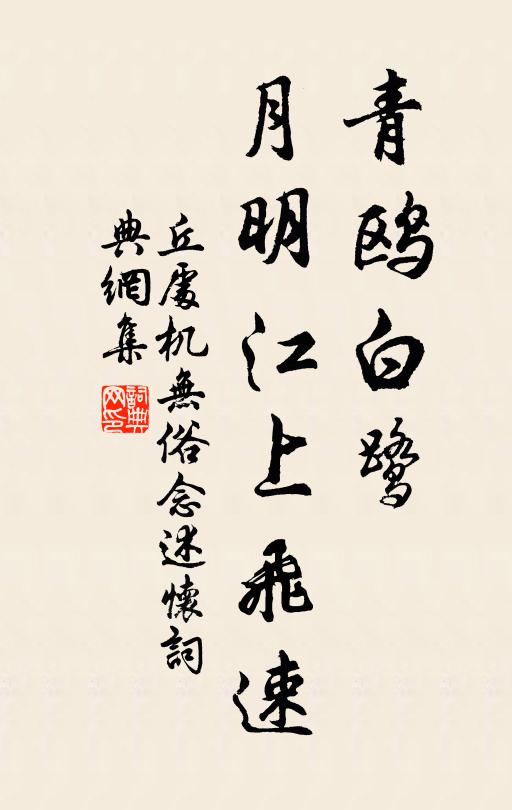 青鸥白鹭
月明江上飛速
丘處机無俗念述懷詞
典網集
詞典
网印